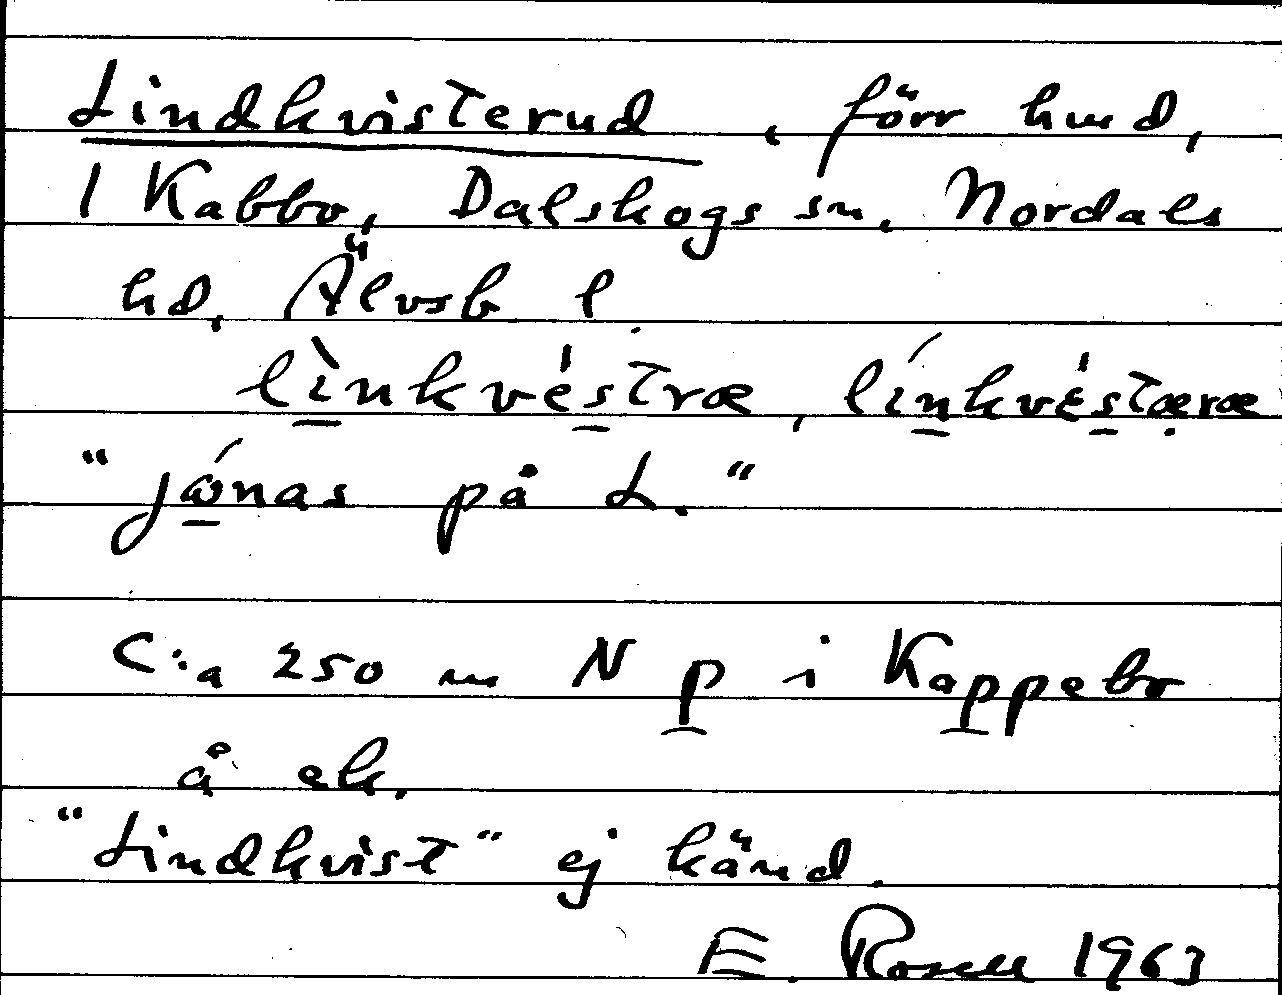 Lindkvisterud, förr hmd,
1 Kabbo, Dalskogs sn, Nordals
hd, Älvsb l.
lìnkvéstræ, línkvéstæræ
"jónas på L."
C:a 250 m N p i Kappebo
å ek.
"Lindkvist" ej känd.
E. Rosell 1963